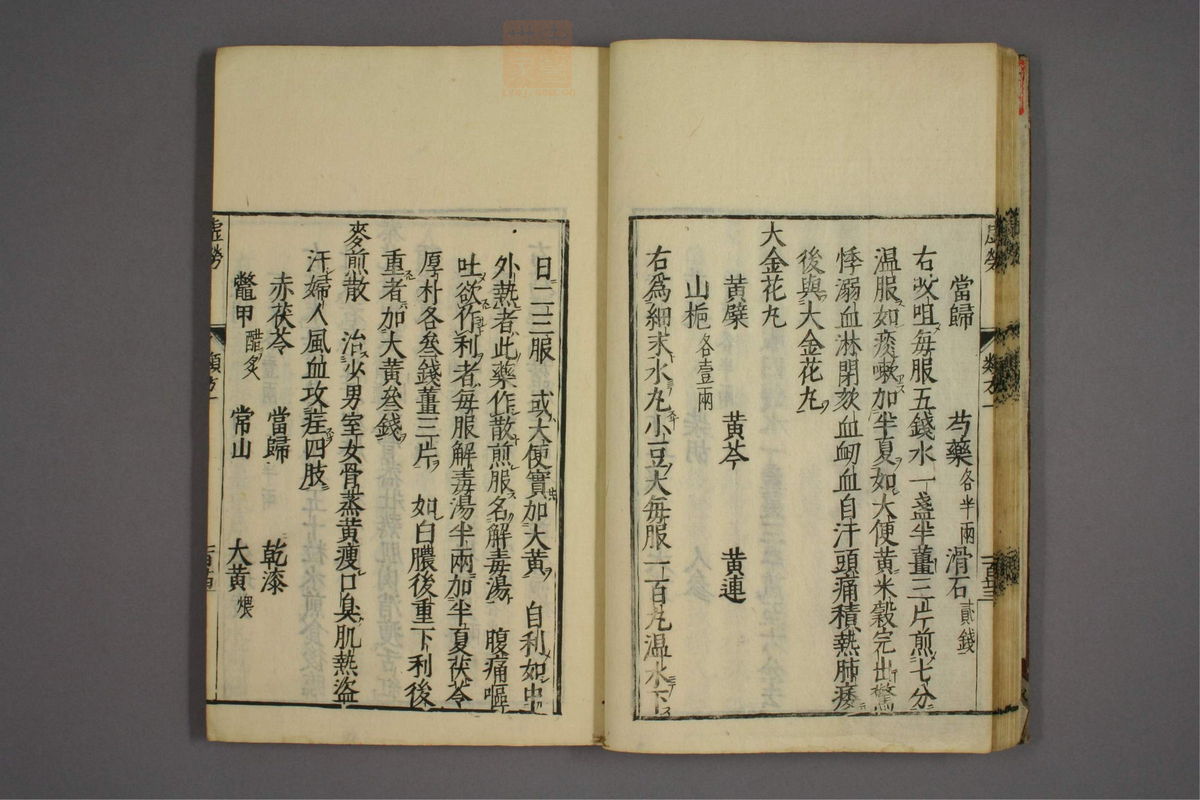 當歸 芍藥各半兩 滑石貳錢
右㕮咀每服五錢水一盞半薑三片煎七分
温服如痰嗽加半夏如大便黄米穀完出驚
悸溺血淋閉欬血衂血自汗頭痛積熱肺痿
後與大金花丸
大金花丸
黄檗 黄芩 黄連
山梔各壹兩
右爲細末水丸小豆大每服一百丸温水下
日二三服 或大便實加大黄 自利如虫
外熱者此藥作散煎服名解毒湯 腹痛嘔
吐欲作利者每服解毒湯半兩加半夏茯苓
厚朴各叄錢薑三片 如白膿後重下利後
重者加大黄叄錢
麥煎散 治少男室女骨蒸黄瘦口臭肌熱盜
汗婦人風血攻疰四肢
赤茯苓 當歸 乾漆
鼈甲醋炙 常山 大黄煨
虚勞 類方一